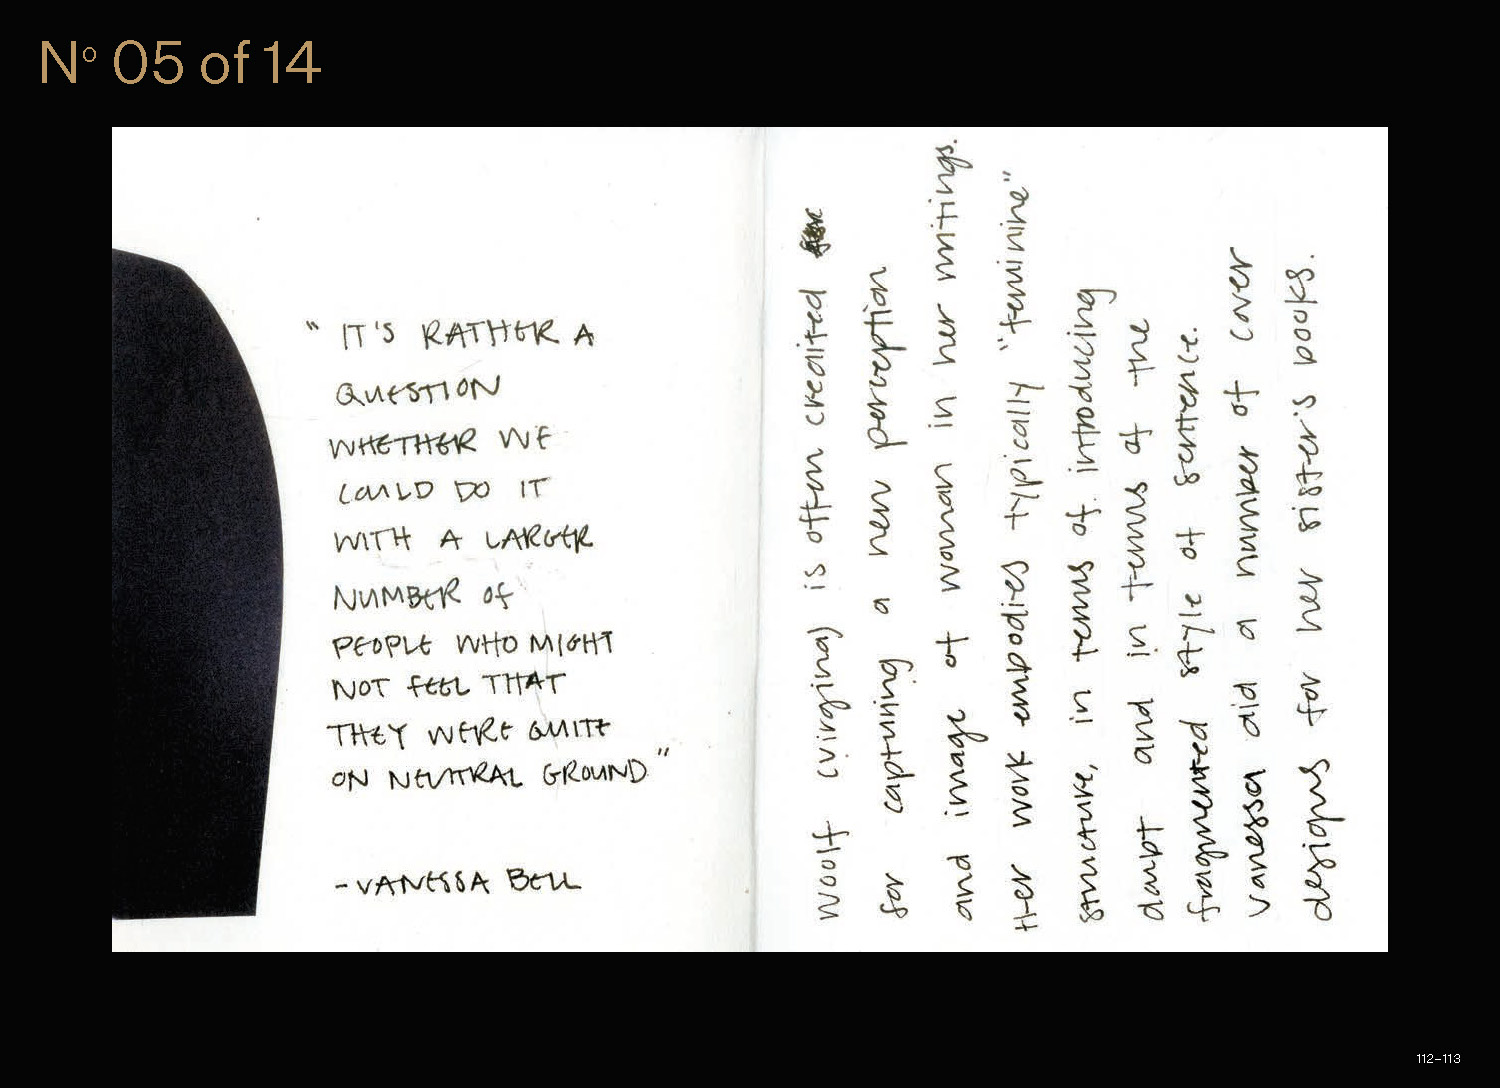 Nº 05 of 14
" IT'S RATHER A
QUESTION
WHETHER WE
COULD DO IT
WITH A LARGER
NUMBER of
PEOPLE WHO MIGHT
NOT FEEL THAT
THEY WERE QUITE
ON NEUTRAL GROUND"
-VANESSA BELL
Woolf (Virgina) is often credited
for capturing a new perception
and image of woman in her writings.
Her work embodies typically "feminine"
structure, in terms of introducing
doubt and in terms of the
fragmented style of sentence.
Vanessa did a number of cover
designs for her sister's books.
112–113